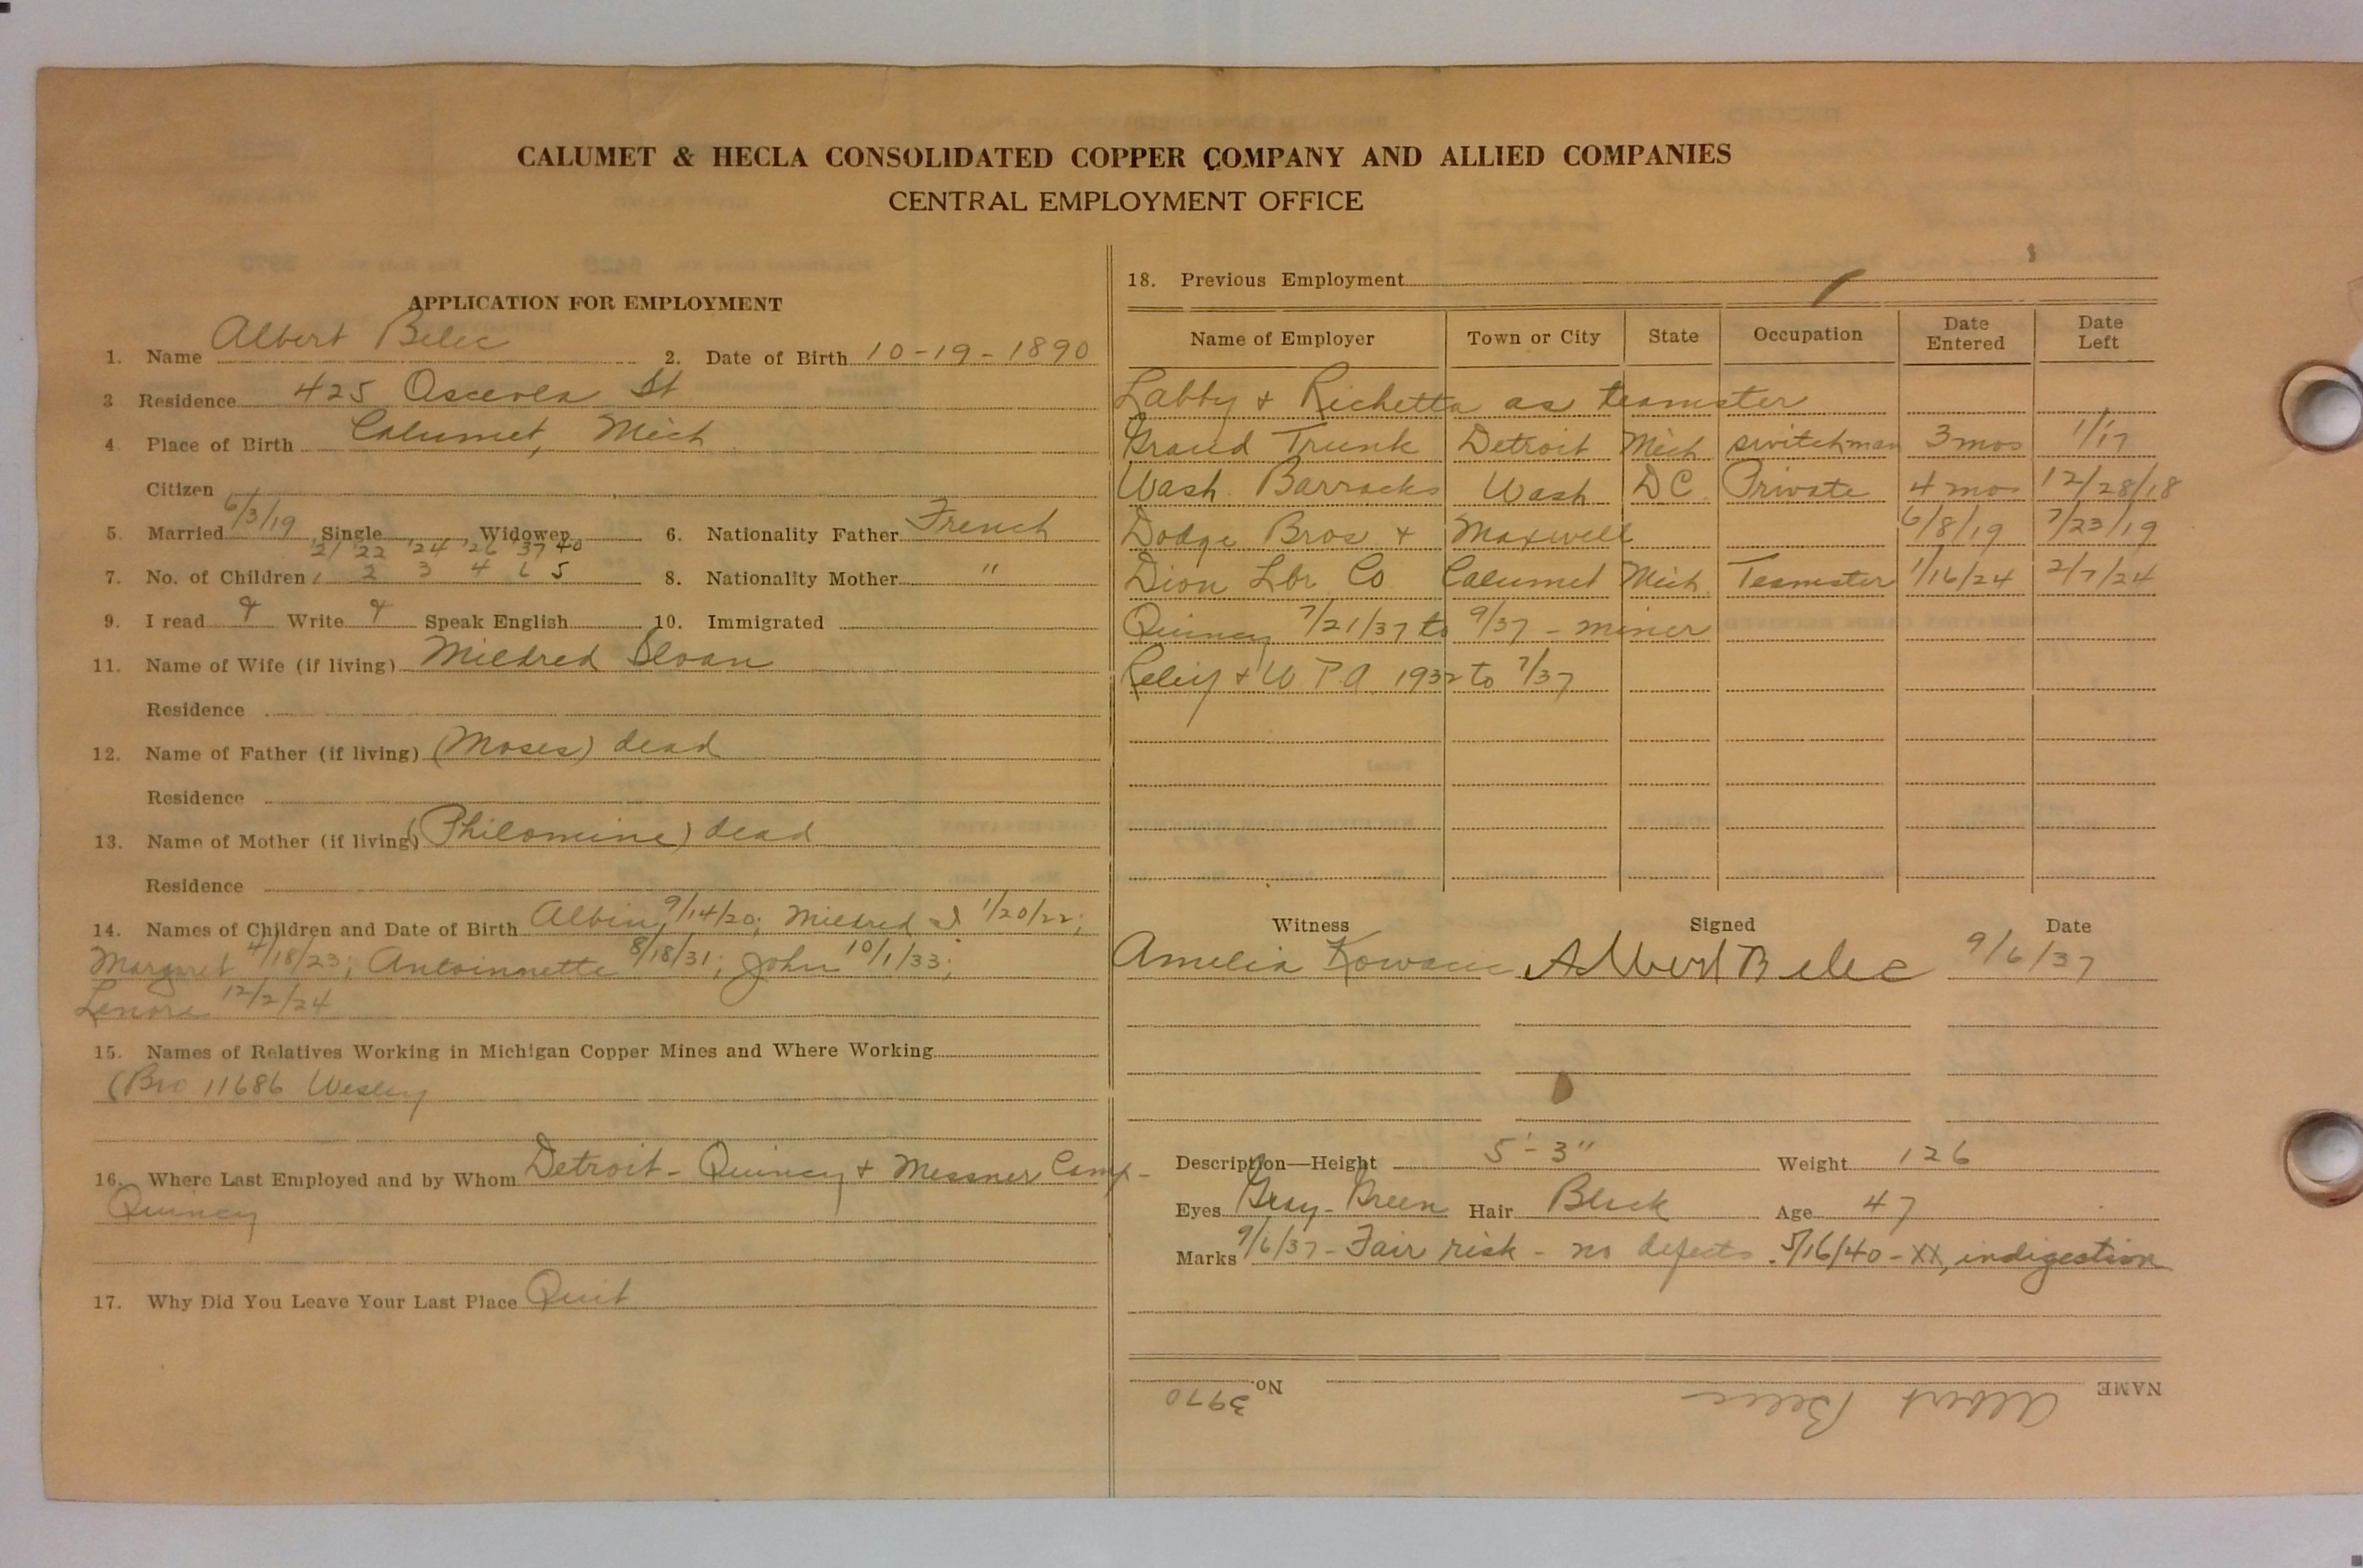 CALUMET & HECLA CONSOLIDATED COPPER COMPANY AND ALLIED COMPANIES
CENTRAL EMPLOYMENT OFFICE
APPLICATION FOR EMPLOYMENT
1. Name Albert Belec 2. Date of Birth 10-19-1890
3 Residence 425 Osceola St
4 Place of Birth Calumet, Mich
Citizen
5. Married 6/3/19 Single Widower 6. Nationality Father French
'21 '22 '24 '26 '37 40
7. No. of Children 1 2 3 4 6 5 8. Nationality Mother "
9. I read Write Speak English 10. Immigrated
11. Name of Wife (if living) Mildred Sloan
Residence
12. Name of Father (if living) (Moses) dead
Residence
13. Name of Mother (if living) (Philomine) dead
Residence
14. Names of Children and Date of Birth Albin 9/14/20; Mildred I 1/20/22;
Margaret 4/18/23; Antoinnette 8/18/31; John 10/1/33;
Lenore 12/2/24
15. Names of Relatives Working in Michigan Copper Mines and Where Working
(Bro 11686 Wesley
16. Where Last Employed and by Whom Detroit - Quincy & Messner Camp -
Quincy
17. Why Did You Leave Your Last Place Quit
18. Previous Employment
Name of Employer Town or City State Occupation Date Entered Date Left
Labby & Richetta as teamster
Grand Trunk Detroit Mich switchman 3 mos 1/17
Wash. Barracks Wash DC Private 4 mos 12/28/18
Dodge Bros & Maxwell 6/8/19 7/23/19
Dion Lbr Co Calumet Mich. Teamster 1/16/24 2/7/24
Quincy 7/21/37 to 9/37 - miner
Relief & W P A 1932 to 7/37
Witness Signed Date
Amelia Albert Belec 9/6/37
Description—Height 5'-3" Weight 126
Eyes Gray-Green Hair Black Age 47
Marks 9/6/37 - Fair risk - no defects. 5/16/40 - XX, indigestion
NAME Albert Belec No. 3970